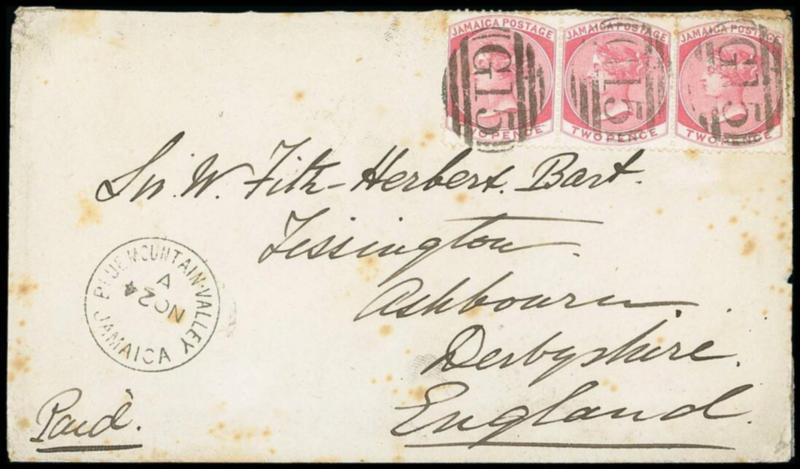 JAMAICA POSTAGE JAMAICA POSTAGE JAMAICA POSTAGE
G15 G15 G15
TWOPENCE TWOPENCE TWOPENCE
Sir W. Fitz-Herbert. Bart.
Tissington.
Ashbourn.
Derbyshire.
England.
BLUE MOUNTAIN-VALLEY
A
NO 24
JAMAICA
Paid.